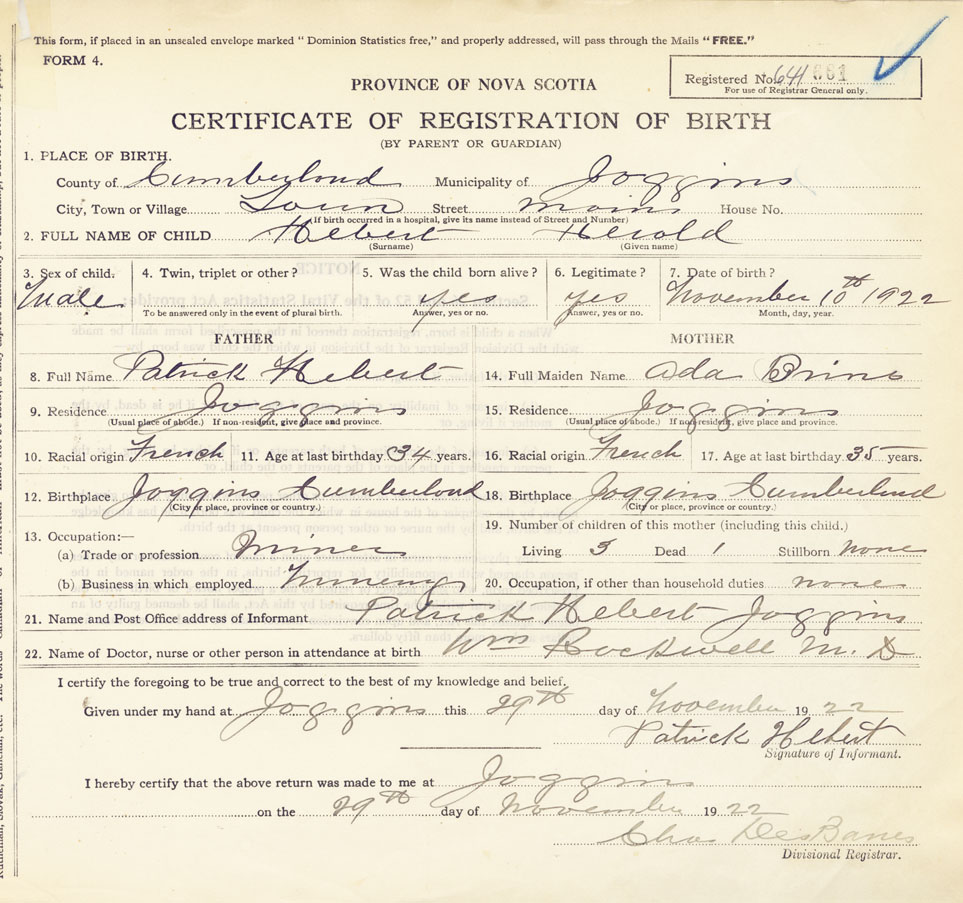 This form, if placed in an unsealed envelope marked " Dominion Statistics free," and properly addressed, will pass through the Mails " FREE."
FORM 4.
Registered No. 641 661
For use of Registrar General only.
PROVINCE OF NOVA SCOTIA
CERTIFICATE OF REGISTRATION OF BIRTH
(BY PARENT OR GUARDIAN)
1. PLACE OF BIRTH.
County of Cumberland Municipality of Joggins
City, Town or Village Town Street Main House No.
(If birth occurred in a hospital, give its name instead of Street and Number)
2. FULL NAME OF CHILD Hebert Herold
(Surname) (Given name)
3. Sex of child. 4. Twin, triplet or other? 5. Was the child born alive? 6. Legitimate? 7. Date of birth?
Male yes yes November 10th 1922
To be answered only in the event of plural birth. Answer, yes or no. Answer, yes or no. Month, day, year.
FATHER MOTHER
8. Full Name Patrick Hebert 14. Full Maiden Name Ada
9. Residence Joggins 15. Residence Joggins
(Usual place of abode.) If non-resident, give place and province. (Usual place of abode.) If non-resident, give place and province.
10. Racial origin French 11. Age at last birthday 34 years. 16. Racial origin French 17. Age at last birthday 35 years.
12. Birthplace Joggins Cumberland 18. Birthplace Joggins Cumberland
(City or place, province or country.) (City or place, province or country.)
13. Occupation:— 19. Number of children of this mother (including this child.)
(a) Trade or profession Miner Living 3 Dead 1 Stillborn none
(b) Business in which employed 20. Occupation, if other than household duties none
21. Name and Post Office address of Informant Patrick Hebert Joggins
22. Name of Doctor, nurse or other person in attendance at birth Wm Rockwell M. D
I certify the foregoing to be true and correct to the best of my knowledge and belief.
Given under my hand at Joggins this 29th day of November 1922
Patrick Hebert
Signature of Informant.
I hereby certify that the above return was made to me at Joggins
on the 29th day of November 1922
Chas DesBarres
Divisional Registrar.